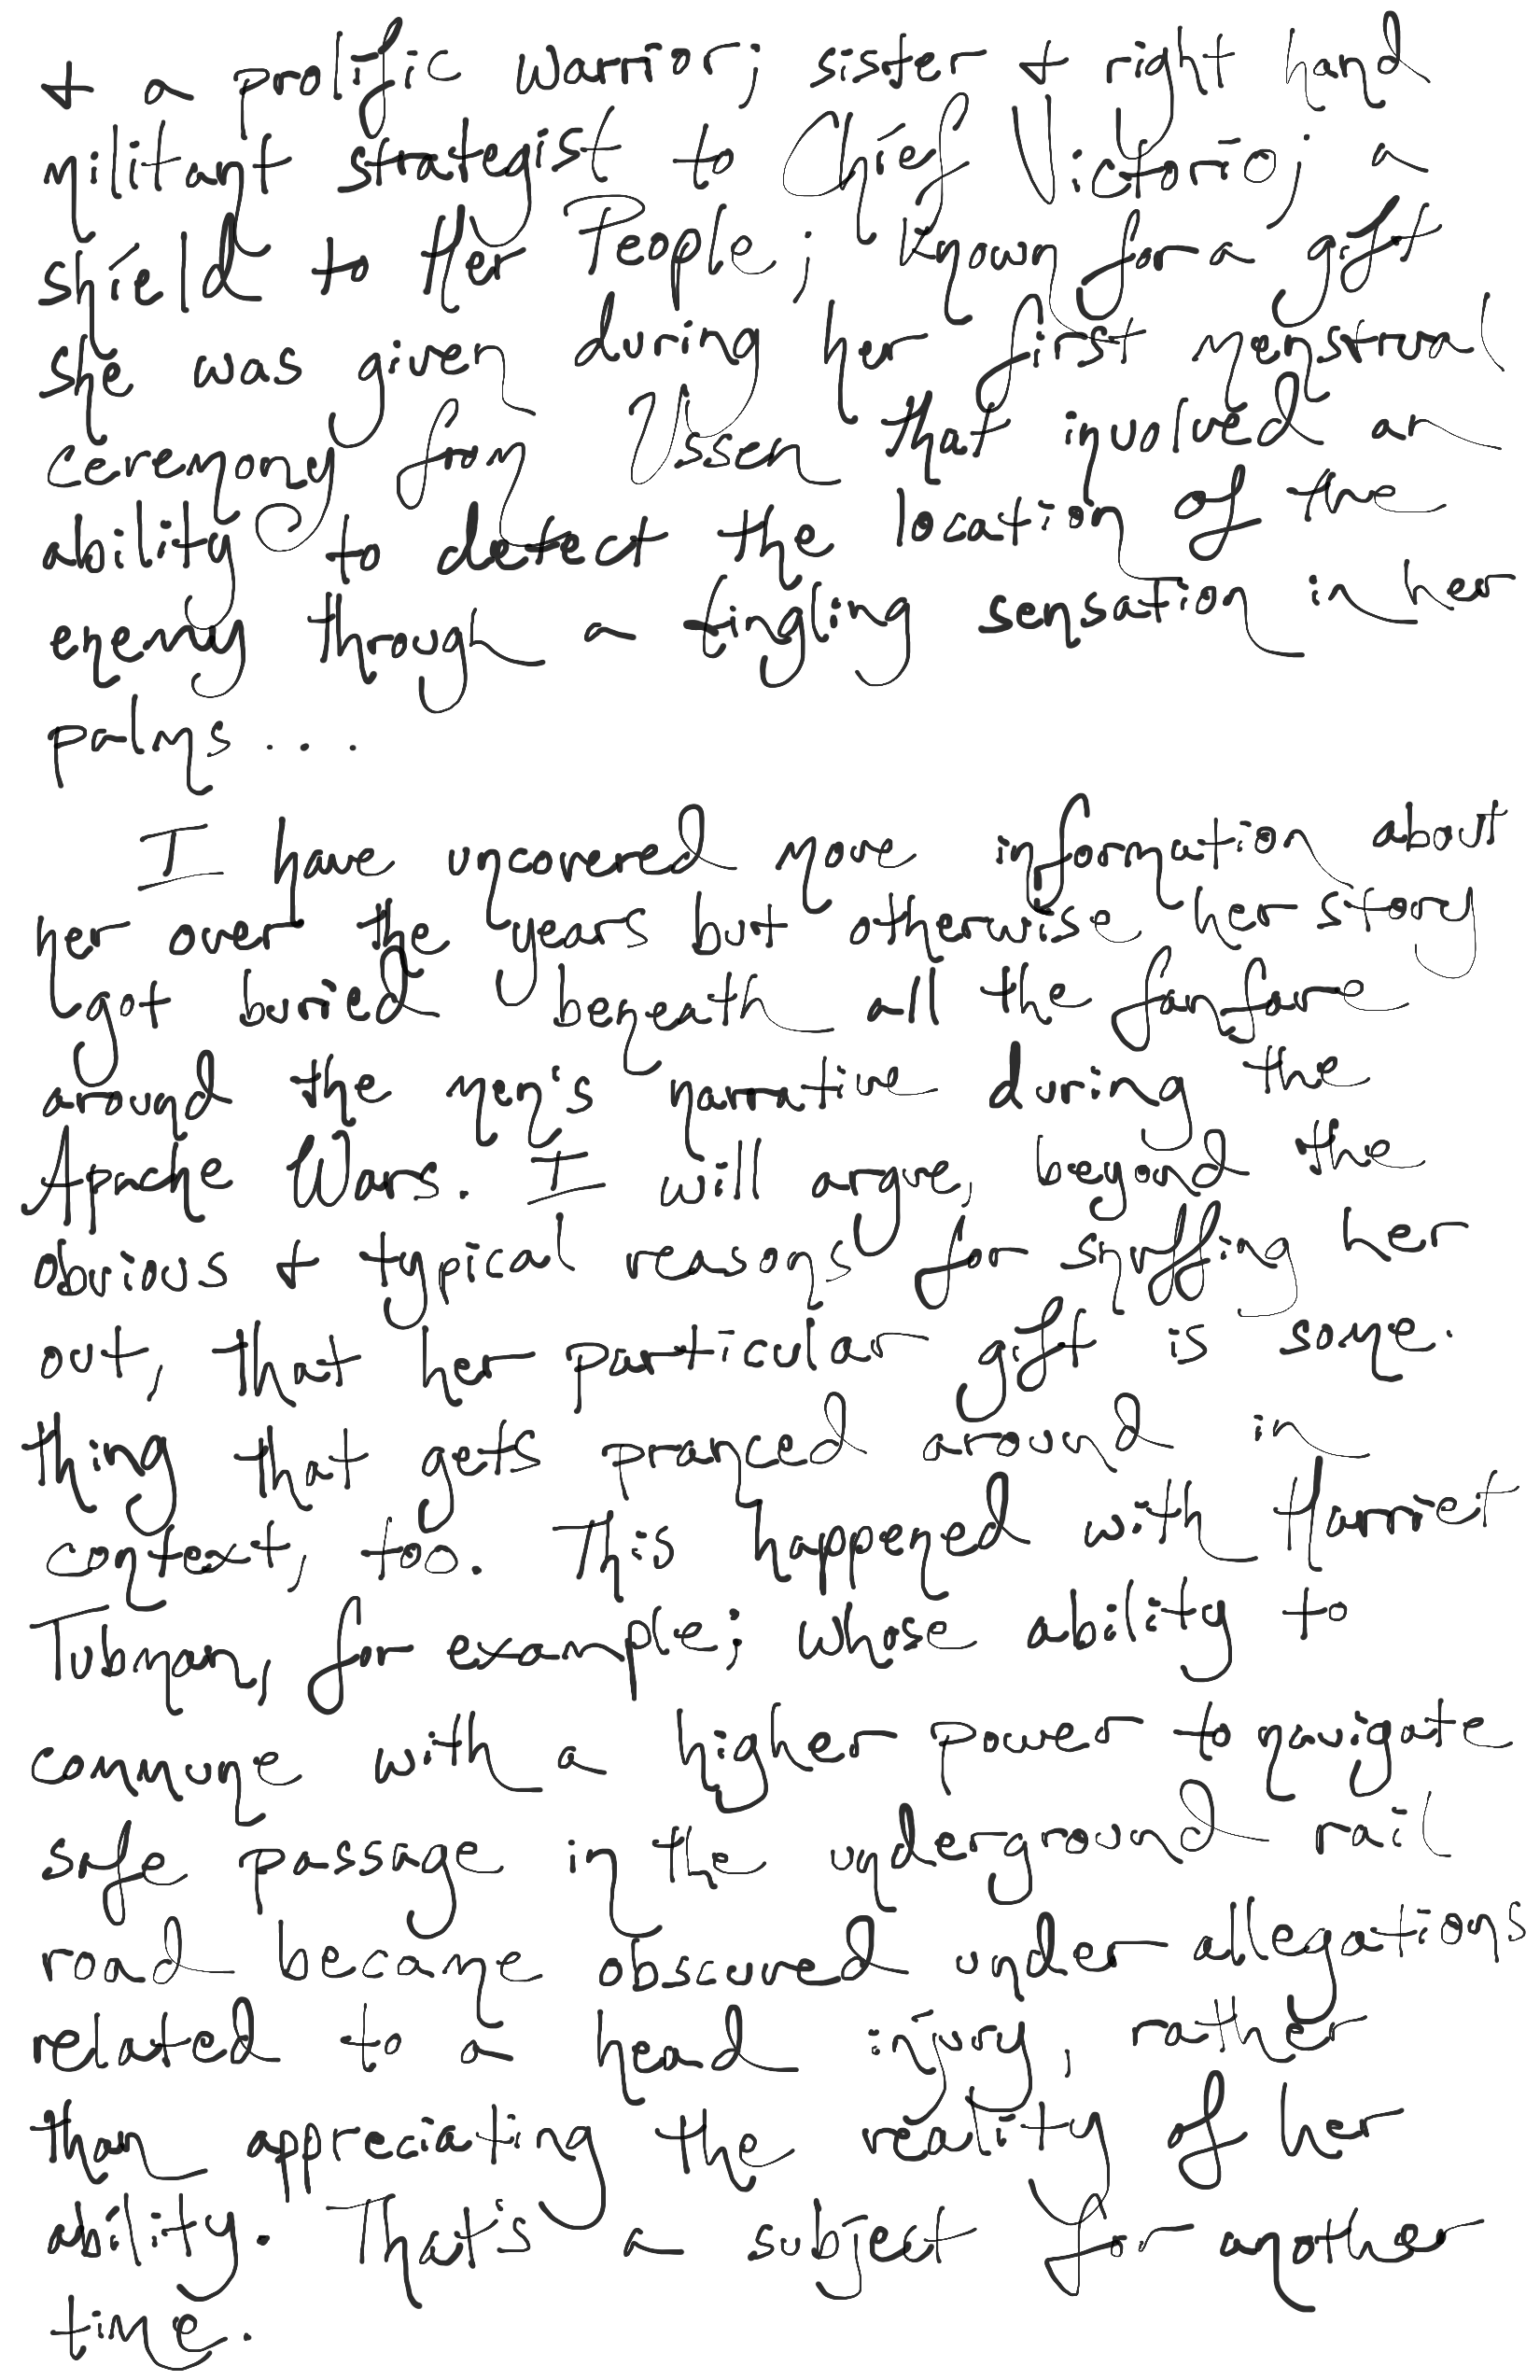 + a prolific warrior; sister + right hand
militant strategist to Chief Victorio; a
shield to Her People; known for a gift
she was given during her first menstrual
ceremony from Ussen that involved an
ability to detect the location of the
enemy through a tingling sensation in her
palms...
I have uncovered more information about
her over the years but otherwise her story
got buried beneath all the fanfare
around the men's narrative during the
Apache Wars. I will argue, beyond the
obvious + typical reasons for snuffing her
out, that her particular gift is some-
thing that gets pranced around in
context, too. This happened with Harriet
Tubman, for example; whose ability to
commune with a higher power to navigate
safe passage in the underground rail
road became obscured under allegations
related to a head injury, rather
than appreciating the reality of her
ability. That's a subject for another
time.